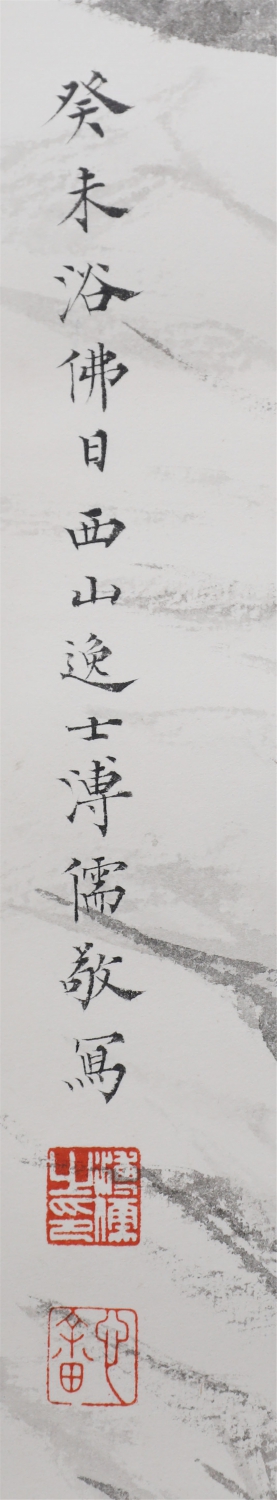 癸未浴佛日西山逸士溥儒敬寫
溥儒之印
心畬